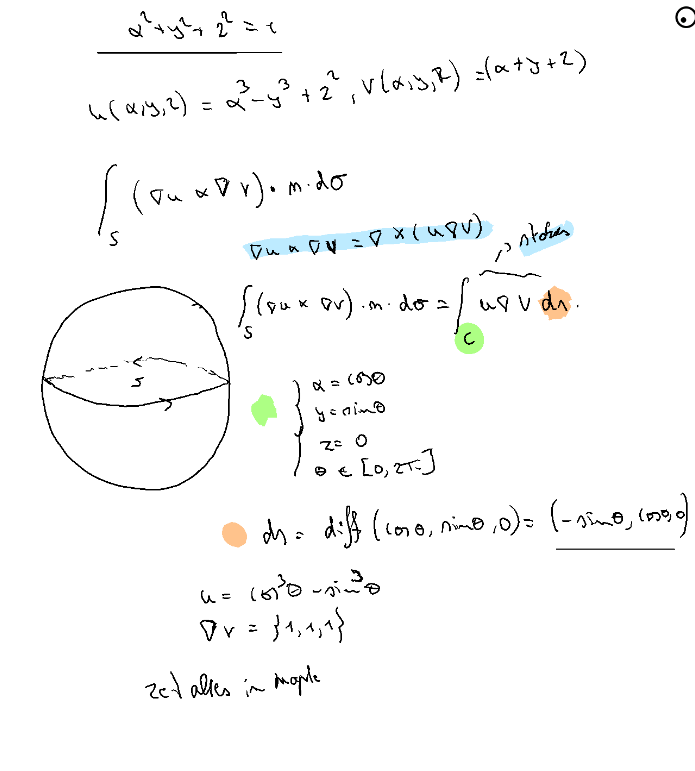 x²+y²+z²=1
u(x,y,z) = x³-y³+z², V(x,y,z) =(x+y+z)
∫_S (∇u x ∇v)•n.dσ
∇u x ∇v = ∇×(u∇V)
→ stokes
∫_S (∇u × ∇v).n.dσ = ∫_C u∇V ds.
S
x = cosθ
y = sinθ
z = 0
θ ∈ [0,2π]
ds = diff(cosθ, sinθ, 0) = (-sinθ, cosθ, 0)
u = cos³θ - sin³θ
∇v = {1,1,1}
zet alles in maple